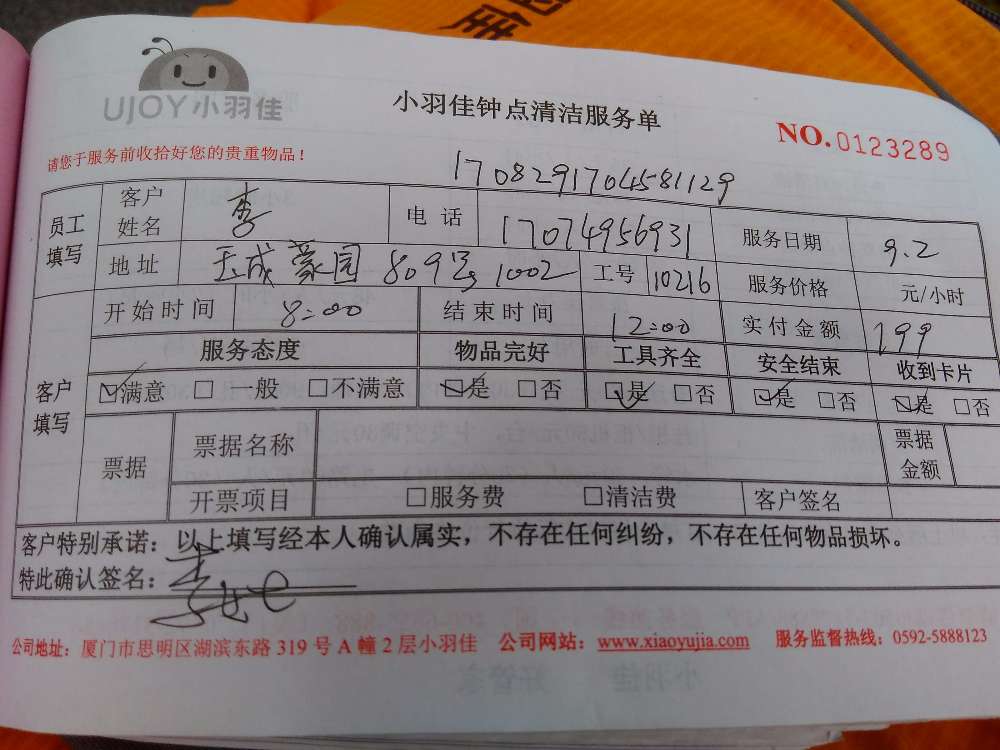 UJOY小羽佳
小羽佳钟点清洁服务单
NO.0123289
请您于服务前收拾好您的贵重物品！
1708291704581129
员工填写 客户姓名 李 电话 17074956931 服务日期 9.2
地址 玉成豪园 809号1002 工号 10216 服务价格 元/小时
开始时间 8:00 结束时间 12:00 实付金额 199
客户填写 服务态度 物品完好 工具齐全 安全结束 收到卡片
☑满意 □一般 □不满意 ☑是 □否 ☑是 □否 ☑是 □否 ☑是 □否
票据 票据名称 票据金额
开票项目 □服务费 □清洁费 客户签名
客户特别承诺：以上填写经本人确认属实，不存在任何纠纷，不存在任何物品损坏。
特此确认签名：李
公司地址：厦门市思明区湖滨东路 319 号 A 幢 2 层小羽佳 公司网站：www.xiaoyujia.com 服务监督热线：0592-5888123